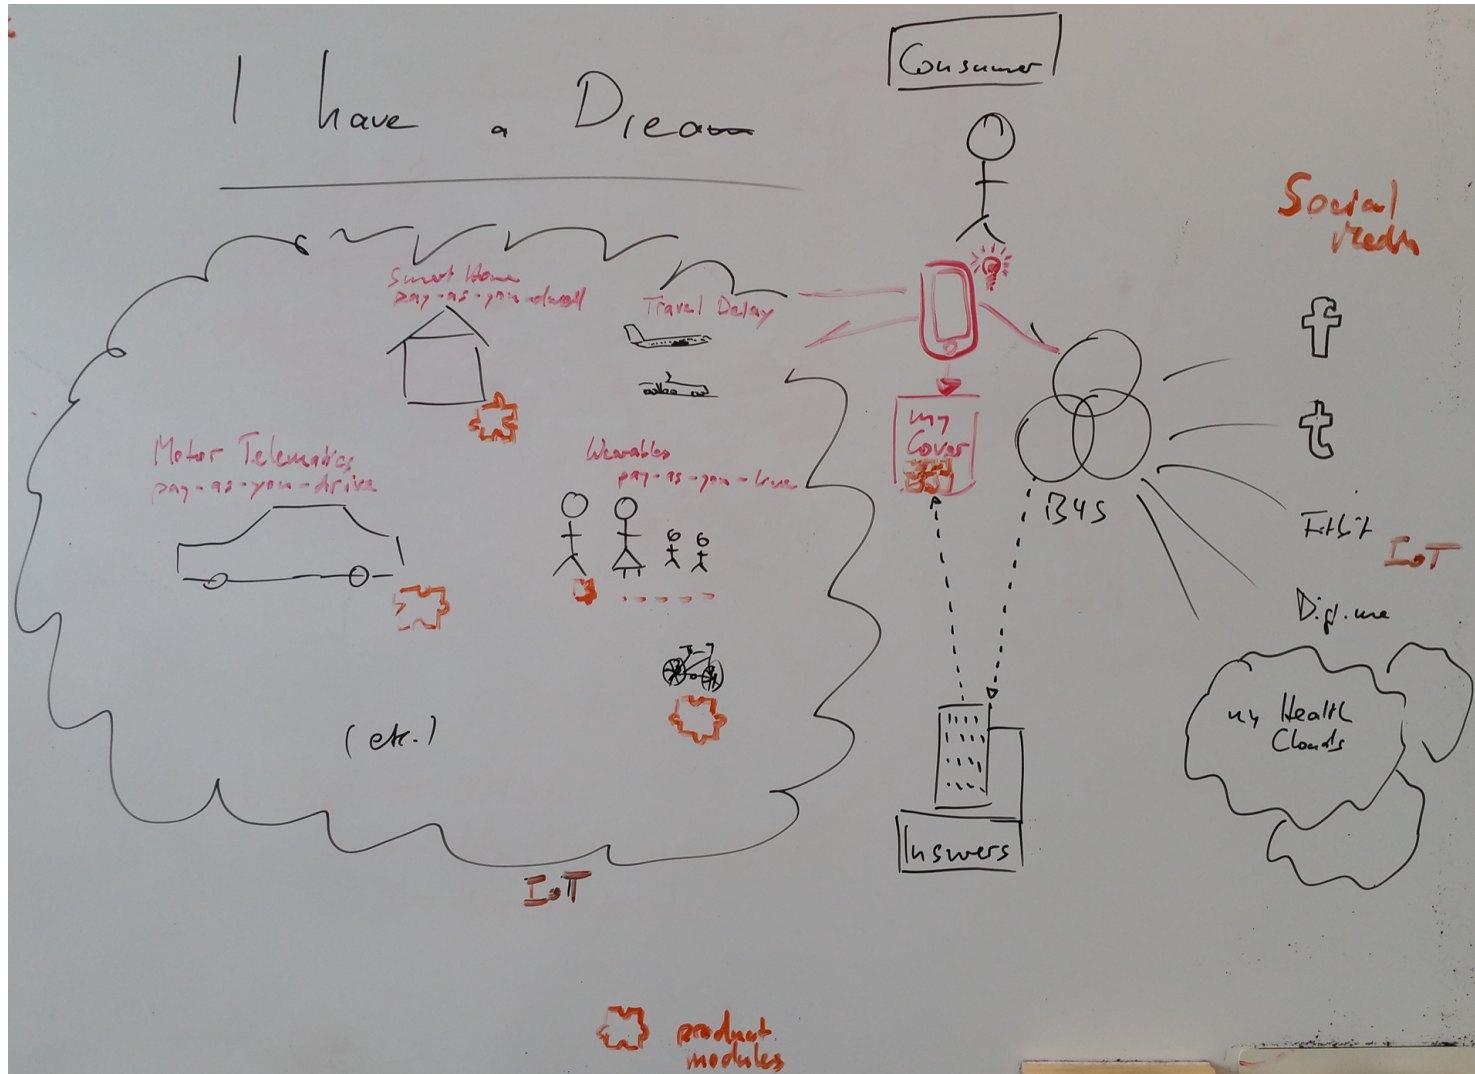 I have a Dream
Consumer
Social
Media
Smart Home
pay-as-you-dwell
Travel Delay
my
Cover
Motor Telematics
pay-as-you-drive
Wearables
pay-as-you-live
f
t
B4S
Fitbit
IoT
Digi.me
my Health
Clouds
(etc.)
Insurers
IoT
product
modules